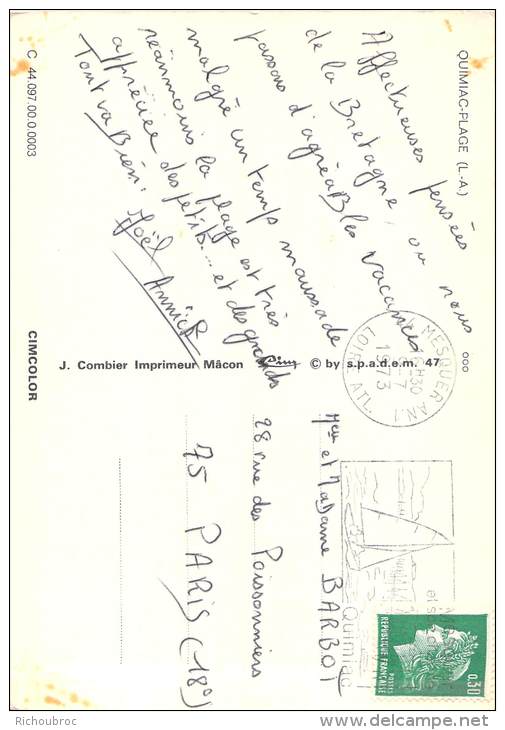 QUIMIAC-PLAGE (L-A)
Affectueuses pensées
de la Bretagne, où nous
passons d'agréables vacances
malgré un temps maussade
néanmoins la plage est très
appréciée des petits... et des grands
Tout va Bien.
Joël Annick
C 44.097.00.0.0003
CIMCOLOR
J. Combier Imprimeur Mâcon
© by s.p.a.d.e.m. 47
MESQUER
6H30
-7
1973
LOIRE ATL.
Quimiac
REPUBLIQUE FRANÇAISE
POSTES
0,30
et Madame BARBOT
28 rue des Poissonniers
75 PARIS (18e)
© Richoubroc
http://www.delcampe.net